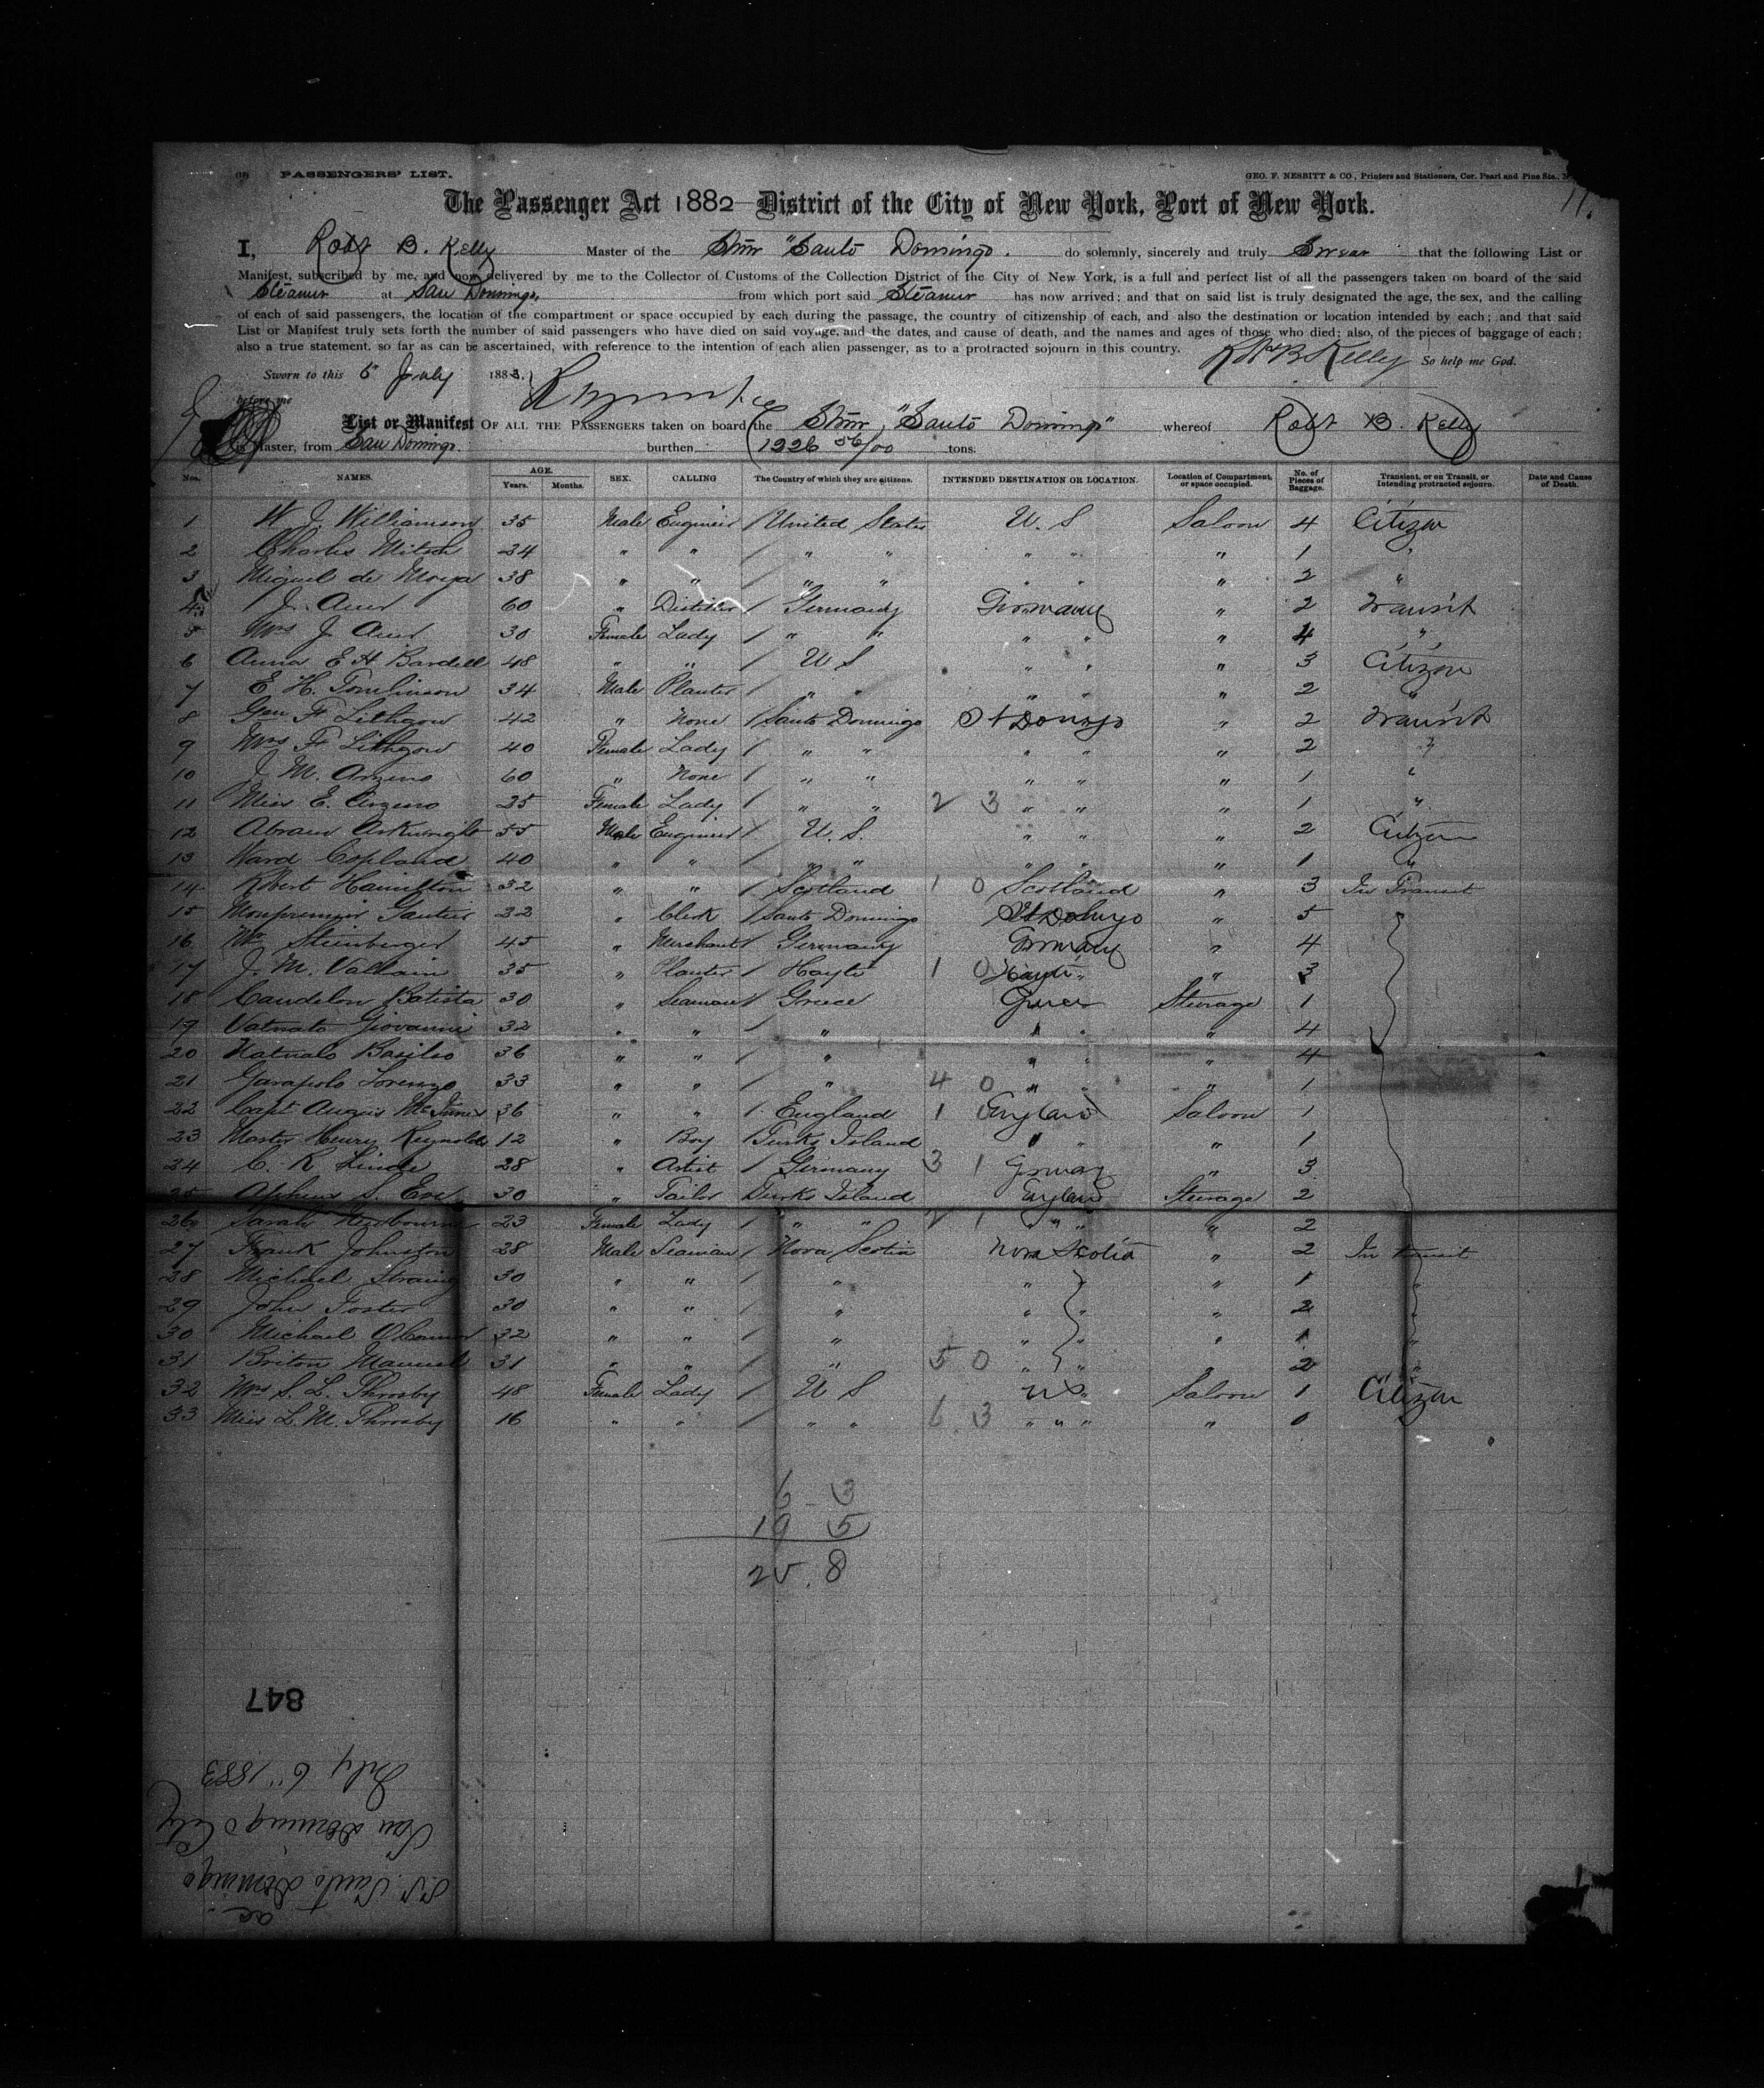 PASSENGERS' LIST.
GEO. F. NESBITT & CO., Printers and Stationers, Cor. Pearl and Pine Sts., N
11.
The Passenger Act 1882 District of the City of New York, Port of New York.
I, Robt B. Kelly Master of the Stmr "Santo Domingo. do solemnly, sincerely and truly Swear that the following List or
Manifest, subscribed by me, and now delivered by me to the Collector of Customs of the Collection District of the City of New York, is a full and perfect list of all the passengers taken on board of the said
Steamer at San Domingo, from which port said Steamer has now arrived; and that on said list is truly designated the age, the sex, and the calling
of each of said passengers, the location of the compartment or space occupied by each during the passage, the country of citizenship of each, and also the destination or location intended by each; and that said
List or Manifest truly sets forth the number of said passengers who have died on said voyage, and the dates, and cause of death, and the names and ages of those who died; also, of the pieces of baggage of each;
also a true statement, so far as can be ascertained, with reference to the intention of each alien passenger, as to a protracted sojourn in this country. Robt B Kelly So help me God.
Sworn to this 6" July 1883.
before me
List or Manifest OF ALL THE PASSENGERS taken on board the Stmr "Santo Domingo" whereof Robt B. Kelly
is Master, from San Domingo. burthen 1226 56/00 tons.
Nos. NAMES. AGE. Years. Months. SEX. CALLING The Country of which they are citizens. INTENDED DESTINATION OR LOCATION. Location of Compartment or space occupied. No. of Pieces of Baggage. Transient, or on Transit, or Intending protracted sojourn. Date and Cause of Death.
1 W. J. Williamson 35 Male Engineer / United States U. S Saloon 4 Citizen
2 Charles Mitsch 24 " " / " " " " " 1 "
3 Miguel de Moya 38 " " / " " " " " 2 "
4 J. Auer 60 " Distiller / Germany Germany " 2 Transit
5 Mrs J. Auer 30 Female Lady / " " " " " 4 "
6 Anna E H Bardell 48 " " / U S " " " 3 Citizen
7 E. H. Tomlinson 34 Male Planter / " " " " " 2 "
8 Gen F Lithgow 42 " None / Santo Domingo St Domgo " 2 Transit
9 Mrs F Lithgow 40 Female Lady / " " " " " 2 "
10 J. M. Arzeno 60 " None / " " " " " 1 "
11 Miss E. Arzeno 25 Female Lady / " " 2 3 " " " 1 "
12 Abram Arkwright 55 Male Engineer / U. S. " " " 2 Citizen
13 Ward Copland 40 " " / " " " " " 1 "
14 Robert Hamilton 32 " " / Scotland 1 0 Scotland " 3 In Transit
15 Monpremier Gautier 22 " Clerk / Santo Domingo St Domgo " 5
16 Wm Steinberger 45 " Merchant / Germany Germany " 4
17 J. M. Vallain 35 " Planter / Hayti 1 0 Hayti " 3
18 Candelon Batista 30 " Seaman / Greece Greece Steerage 1
19 Vatnato Giovanni 32 " " / " " " " 4
20 Natualo Basilio 36 " " / " " " " 4
21 Garapolo Lorenzo 33 " " / " 4 0 " " " 1
22 Capt Angus McInnes 36 " " / England 1 England Saloon 1
23 Master Henry Reynolds 12 " Boy Turks Island " " " 1
24 C. R. Linde 28 " Artist / Germany 3 1 Germany " 3
25 Alpheus S. Eve 30 " Tailor Turks Island England Steerage 2
26 Sarah 23 Female Lady / " " 2 1 " " " 2
27 Frank Johnston 28 Male Seaman / Nova Scotia Nova Scotia " 2 In transit
28 Michael 30 " " / " " " 1 "
29 John Foster 30 " " / " " " " 2 "
30 Michael OConnor 32 " " / " " " " 1 "
31 Briton Manuel 31 " " / " 5 0 " " 2 "
32 Mrs S. L. Throsby 48 Female Lady / U S U S Saloon 1 Citizen
33 Miss L. M. Throsby 16 " " / " " 6 3 " " " " 0 "
6 3
19 5
25. 8
847
ac.
S.S. Santo Domingo
San Domingo City
July 6" 1883